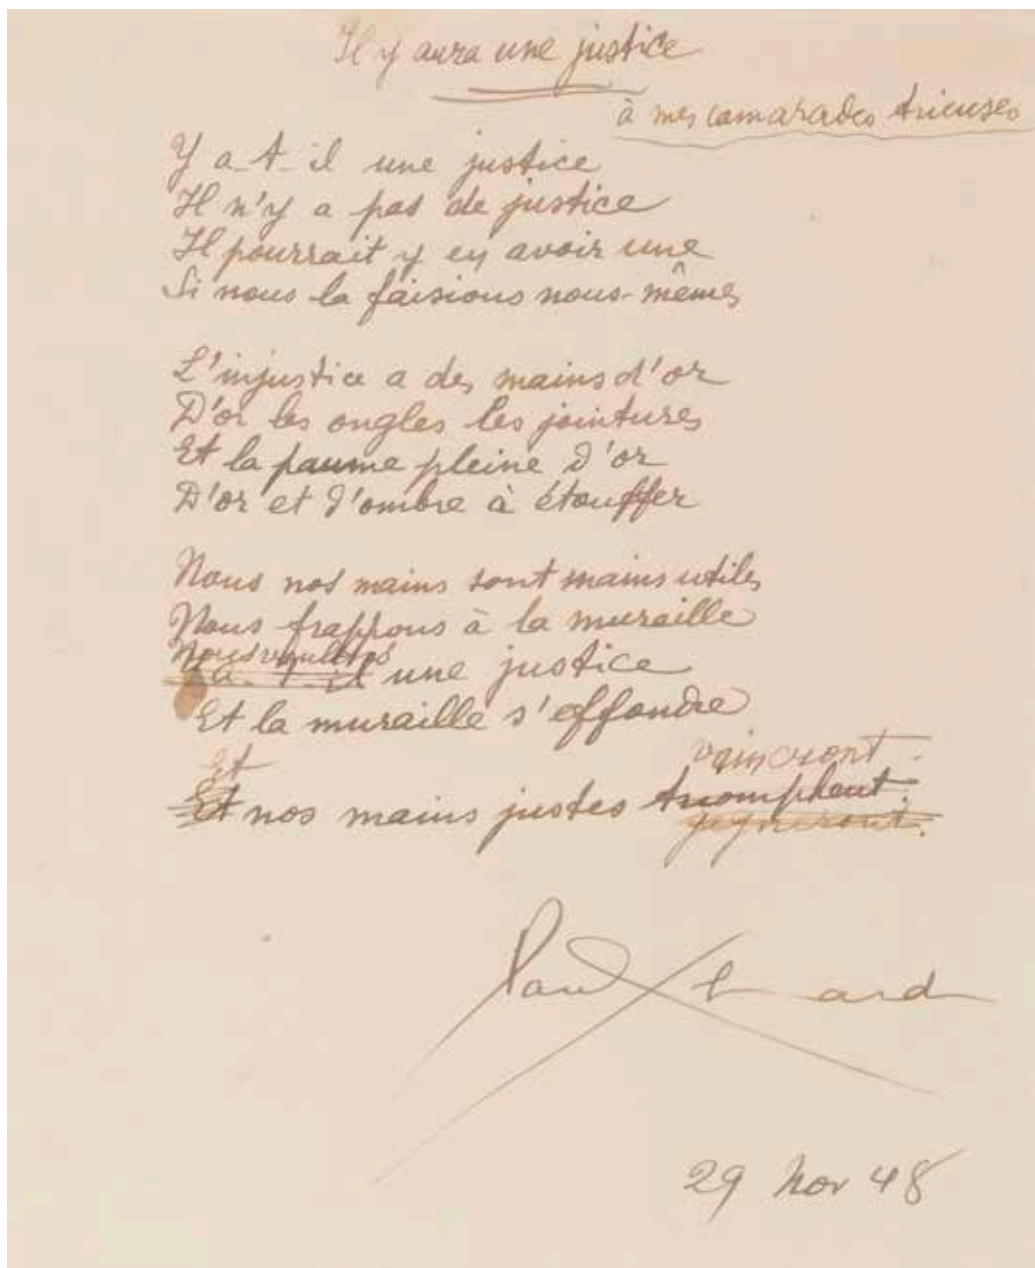 Il y aura une justice
à mes camarades trieuses
Y a-t-il une justice
Il n'y a pas de justice
Il pourrait y en avoir une
Si nous la faisions nous-mêmes
L'injustice a des mains d'or
D'or les ongles les jointures
Et la paume pleine d'or
D'or et d'ombre à étouffer
Nous nos mains sont mains utiles
Nous frappons à la muraille
Nous voulons
Y a-t-il une justice
Et la muraille s'effondre
Et vaincront.
Et nos mains justes triomphent.
gagneront.
Paul Eluard
29 Nov 48